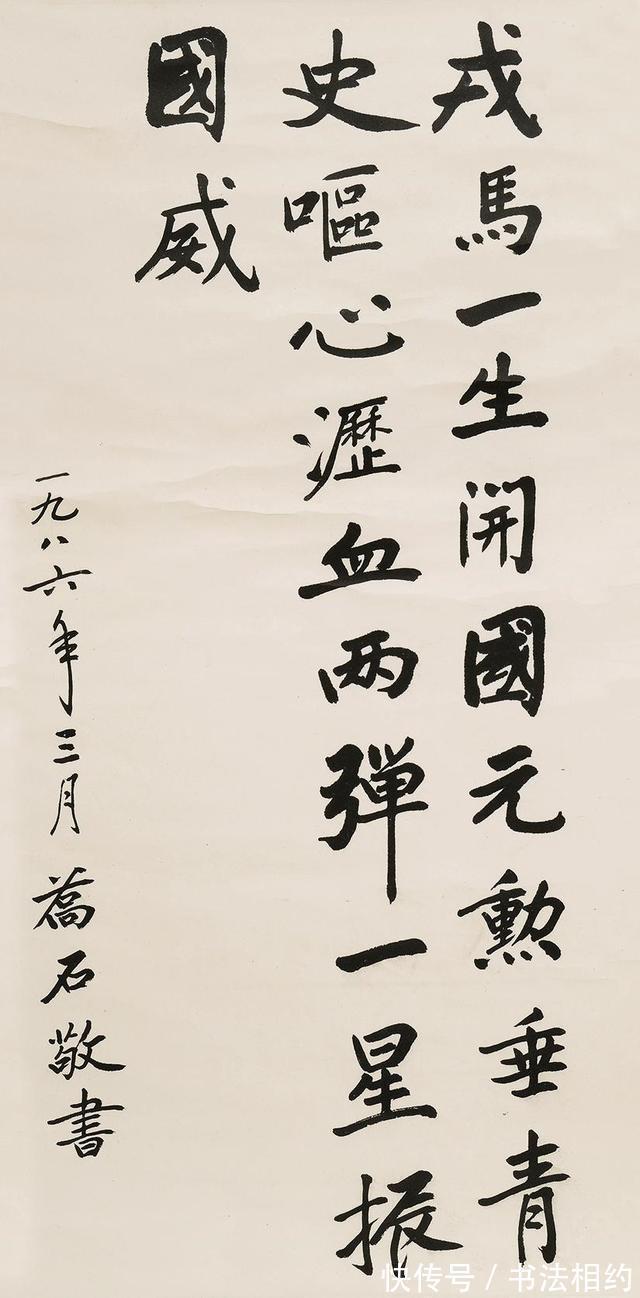 戎馬一生開國元勲垂青
史嘔心瀝血两彈一星振
國威
一九八六年三月喬石敬書
快传号/书法相约